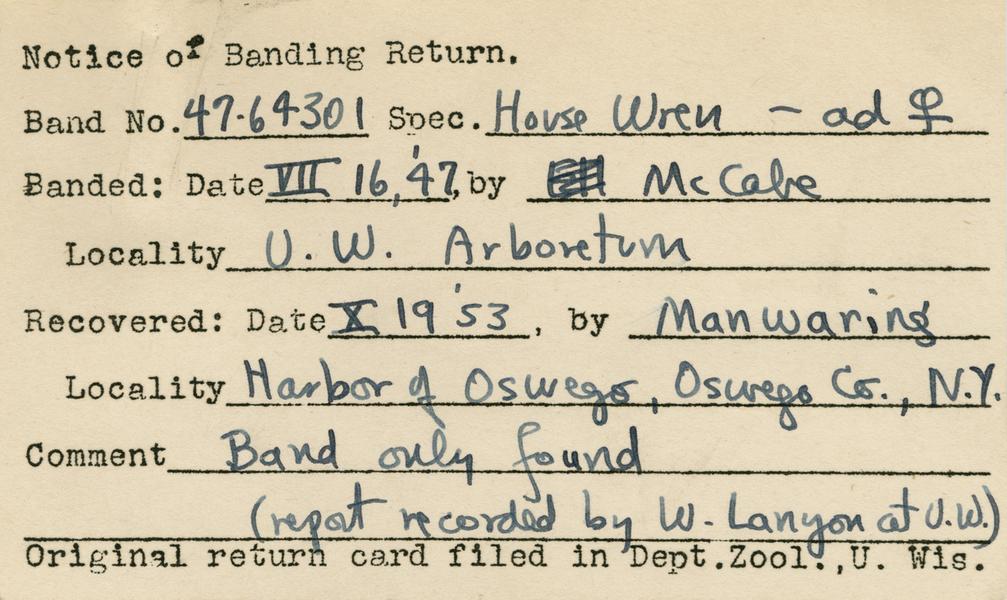 Notice of Banding Return.
Band No. 47-64301 Spec. House Wren - ad ♀
Banded: Date VII 16, '47, by McCabe
Locality U.W. Arboretum
Recovered: Date X 19 '53, by Manwaring
Locality Harbor of Oswego, Oswego Co., N.Y.
Comment Band only found
(report recorded by W. Lanyon at U.W.)
Original return card filed in Dept.Zool.,U. Wis.